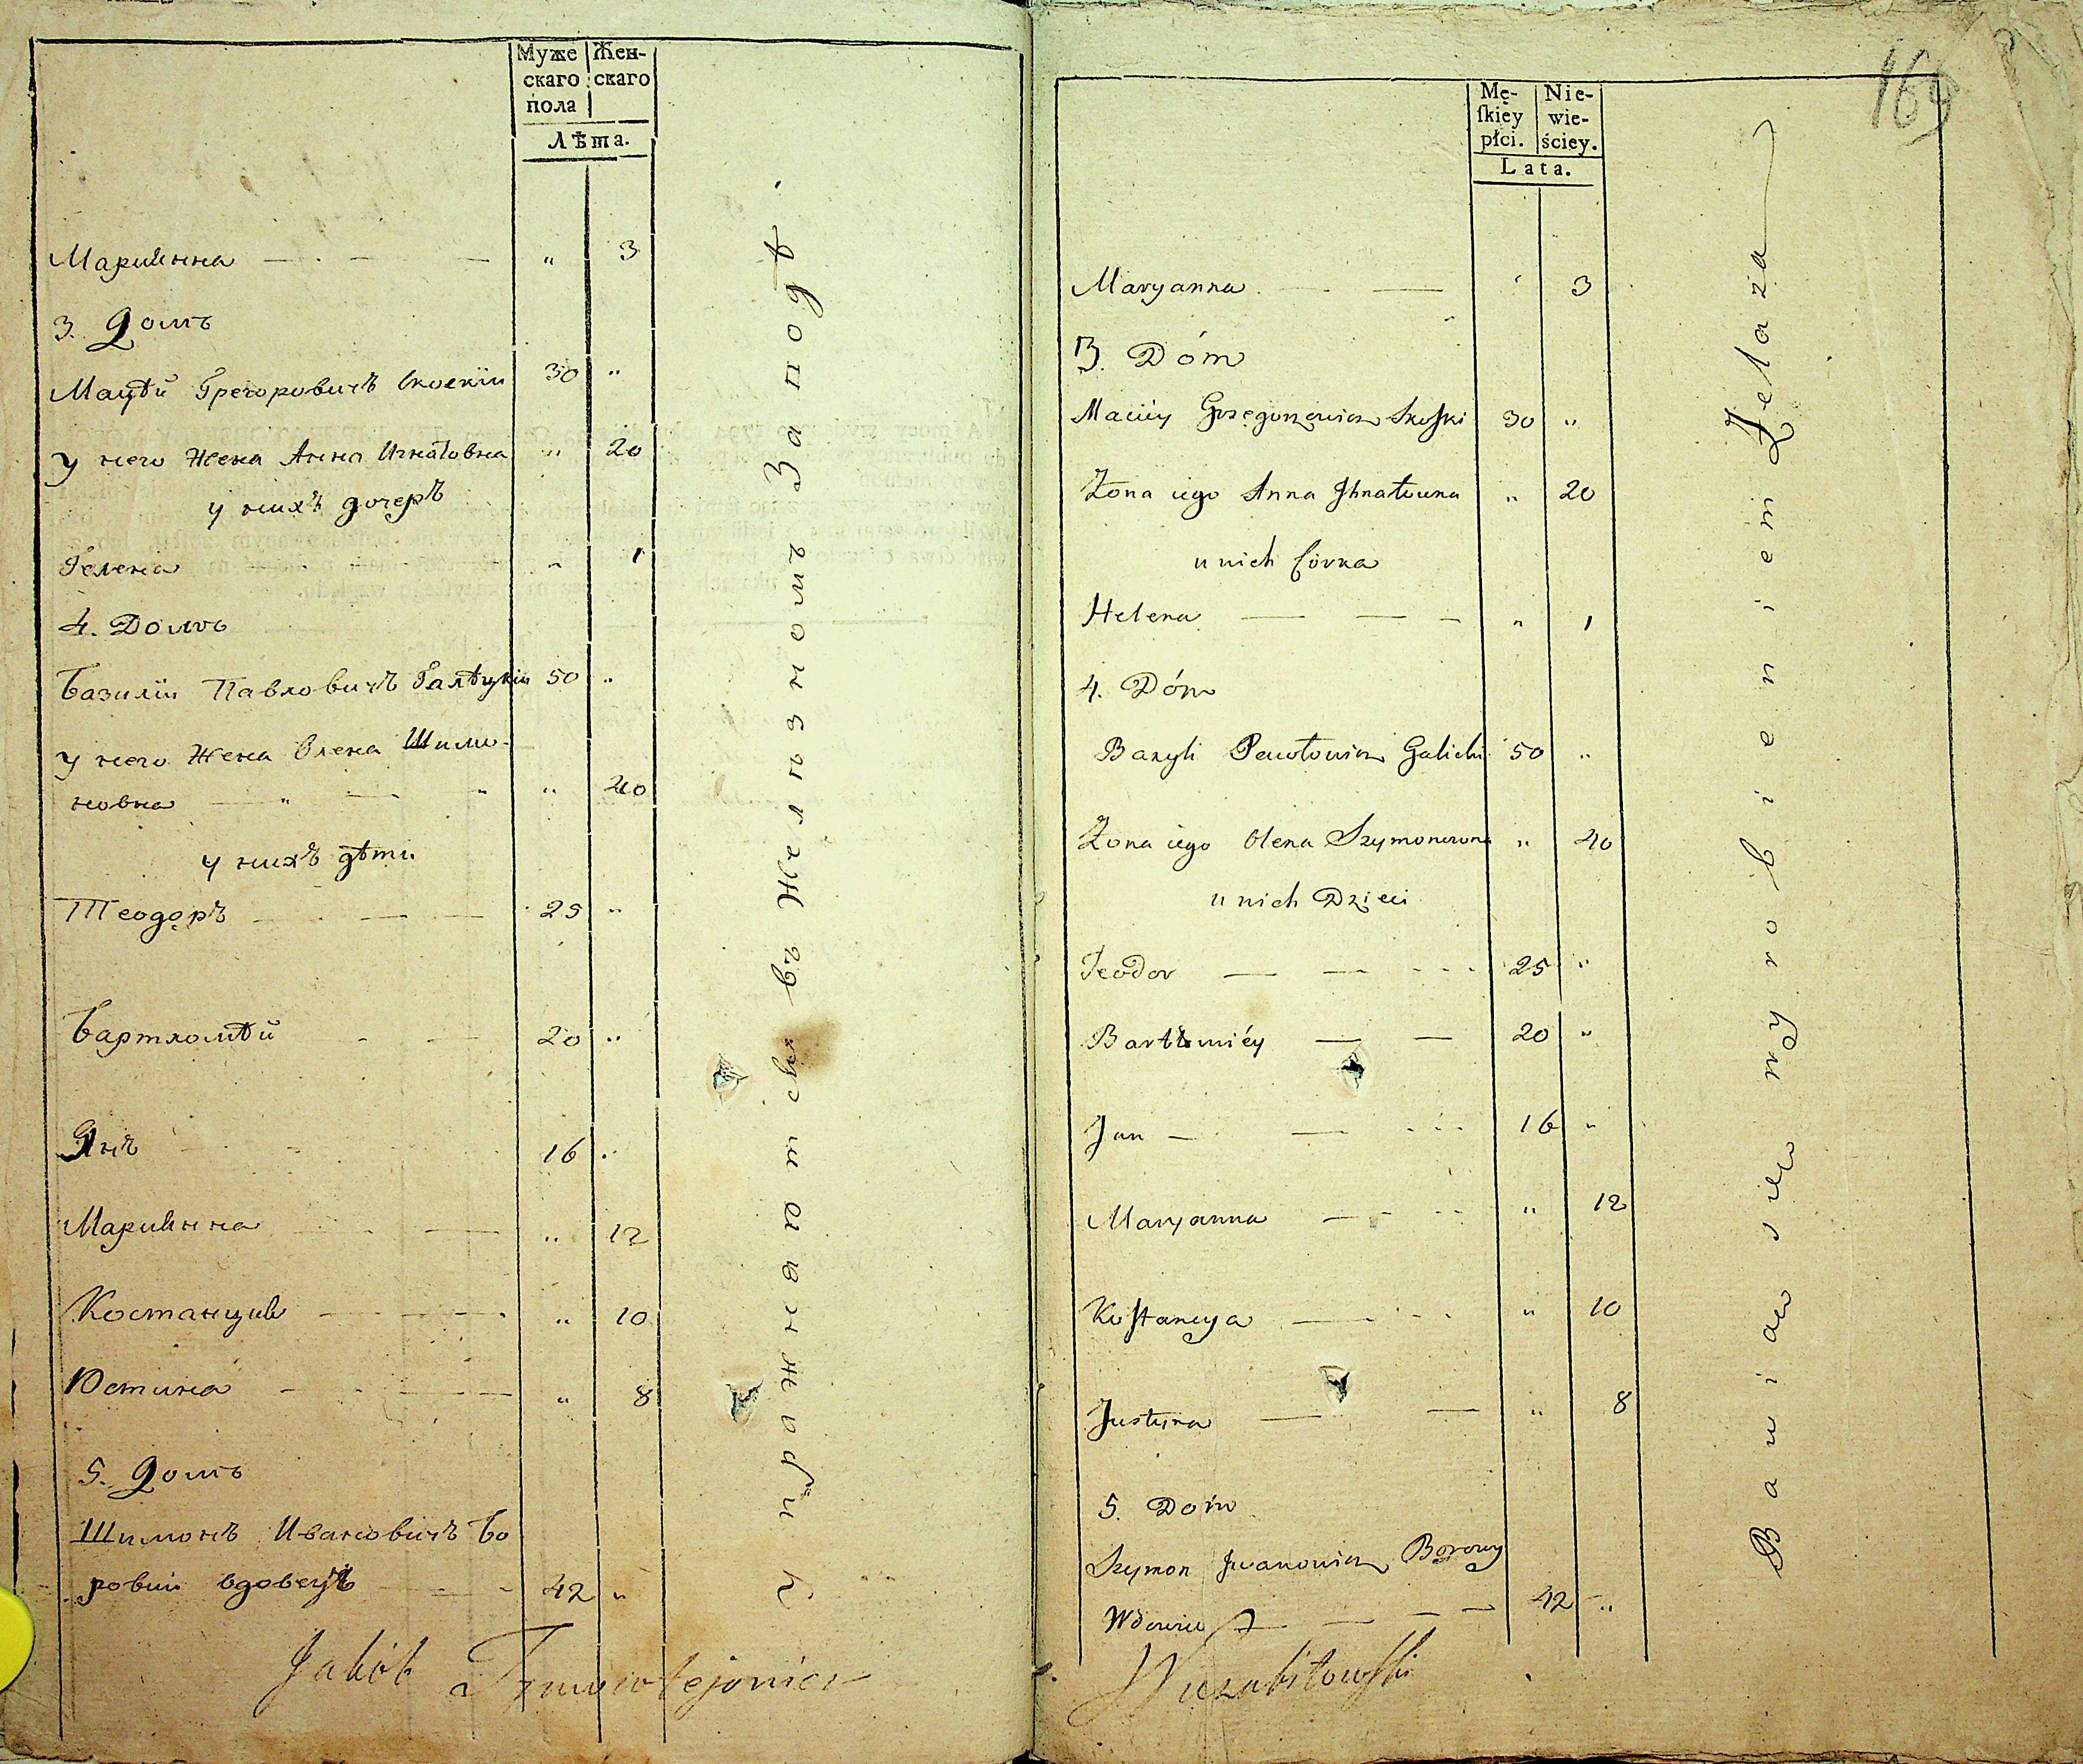 Муже Жен-
скаго скаго
пола
Лѣта.
Марианна " 3
3. Домъ
Мацѣй Грегоровичъ Скоскіи 30 "
у него Жена Анна Игнатовна " 20
у нихъ дочеръ
Гелена " 1
4. Домъ
Базиліи Павловичъ Галѣцкіи 50 "
у него Жена Олена Шимо-
новна " 40
у нихъ дѣти
Теодоръ 25 "
Бартломѣй 20 "
Янъ 16 "
Марианна " 12
Костанция " 10
Юстина " 8
5. Домъ
Шимонъ Ивановичъ Бо
ровии вдовецъ 42 "
Упражняются въ Желѣзномъ Заводѣ.
Jakób
169
Mę- Nie-
ſkiey wie-
płci. ściey.
Lata.
Maryanna " 3
3. Dóm
Maciéy Grzegorzowicz Skoſki 30 "
Żona iego Anna Ihnatowna " 20
u nich Córka
Helena " 1
4. Dóm
Bazyli Pawłowicz Galicki 50 "
Żona iego Olena Szymonowna " 40
u nich Dzieci
Teodor 25 "
Bartłomiéy 20 "
Jan 16 "
Maryanna " 12
Koſtancya " 10
Justyna " 8
5. Dóm
Szymon Jwanowicz Borowy
Wdowiec 42 "
Bawią się wyrobieniem Żelaza